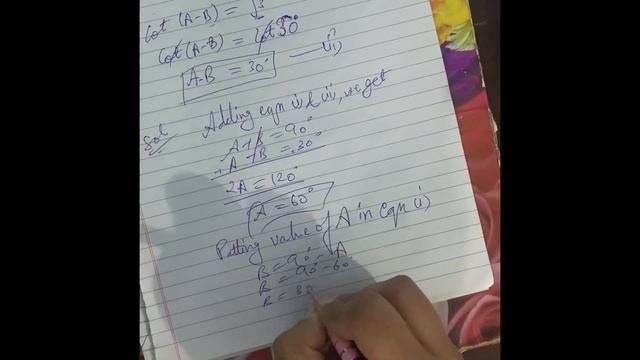 Cot (A-B) = √3
Cot (A-B) = Cot 30°
A-B = 30° — (ii)
Sol Adding eqn (i) & (ii), we get
A+B = 90°
+A-B = 30°
2A = 120°
A = 60°
Putting value of A in eqn (i)
B = 90° - A
B = 90° - 60
B = 30